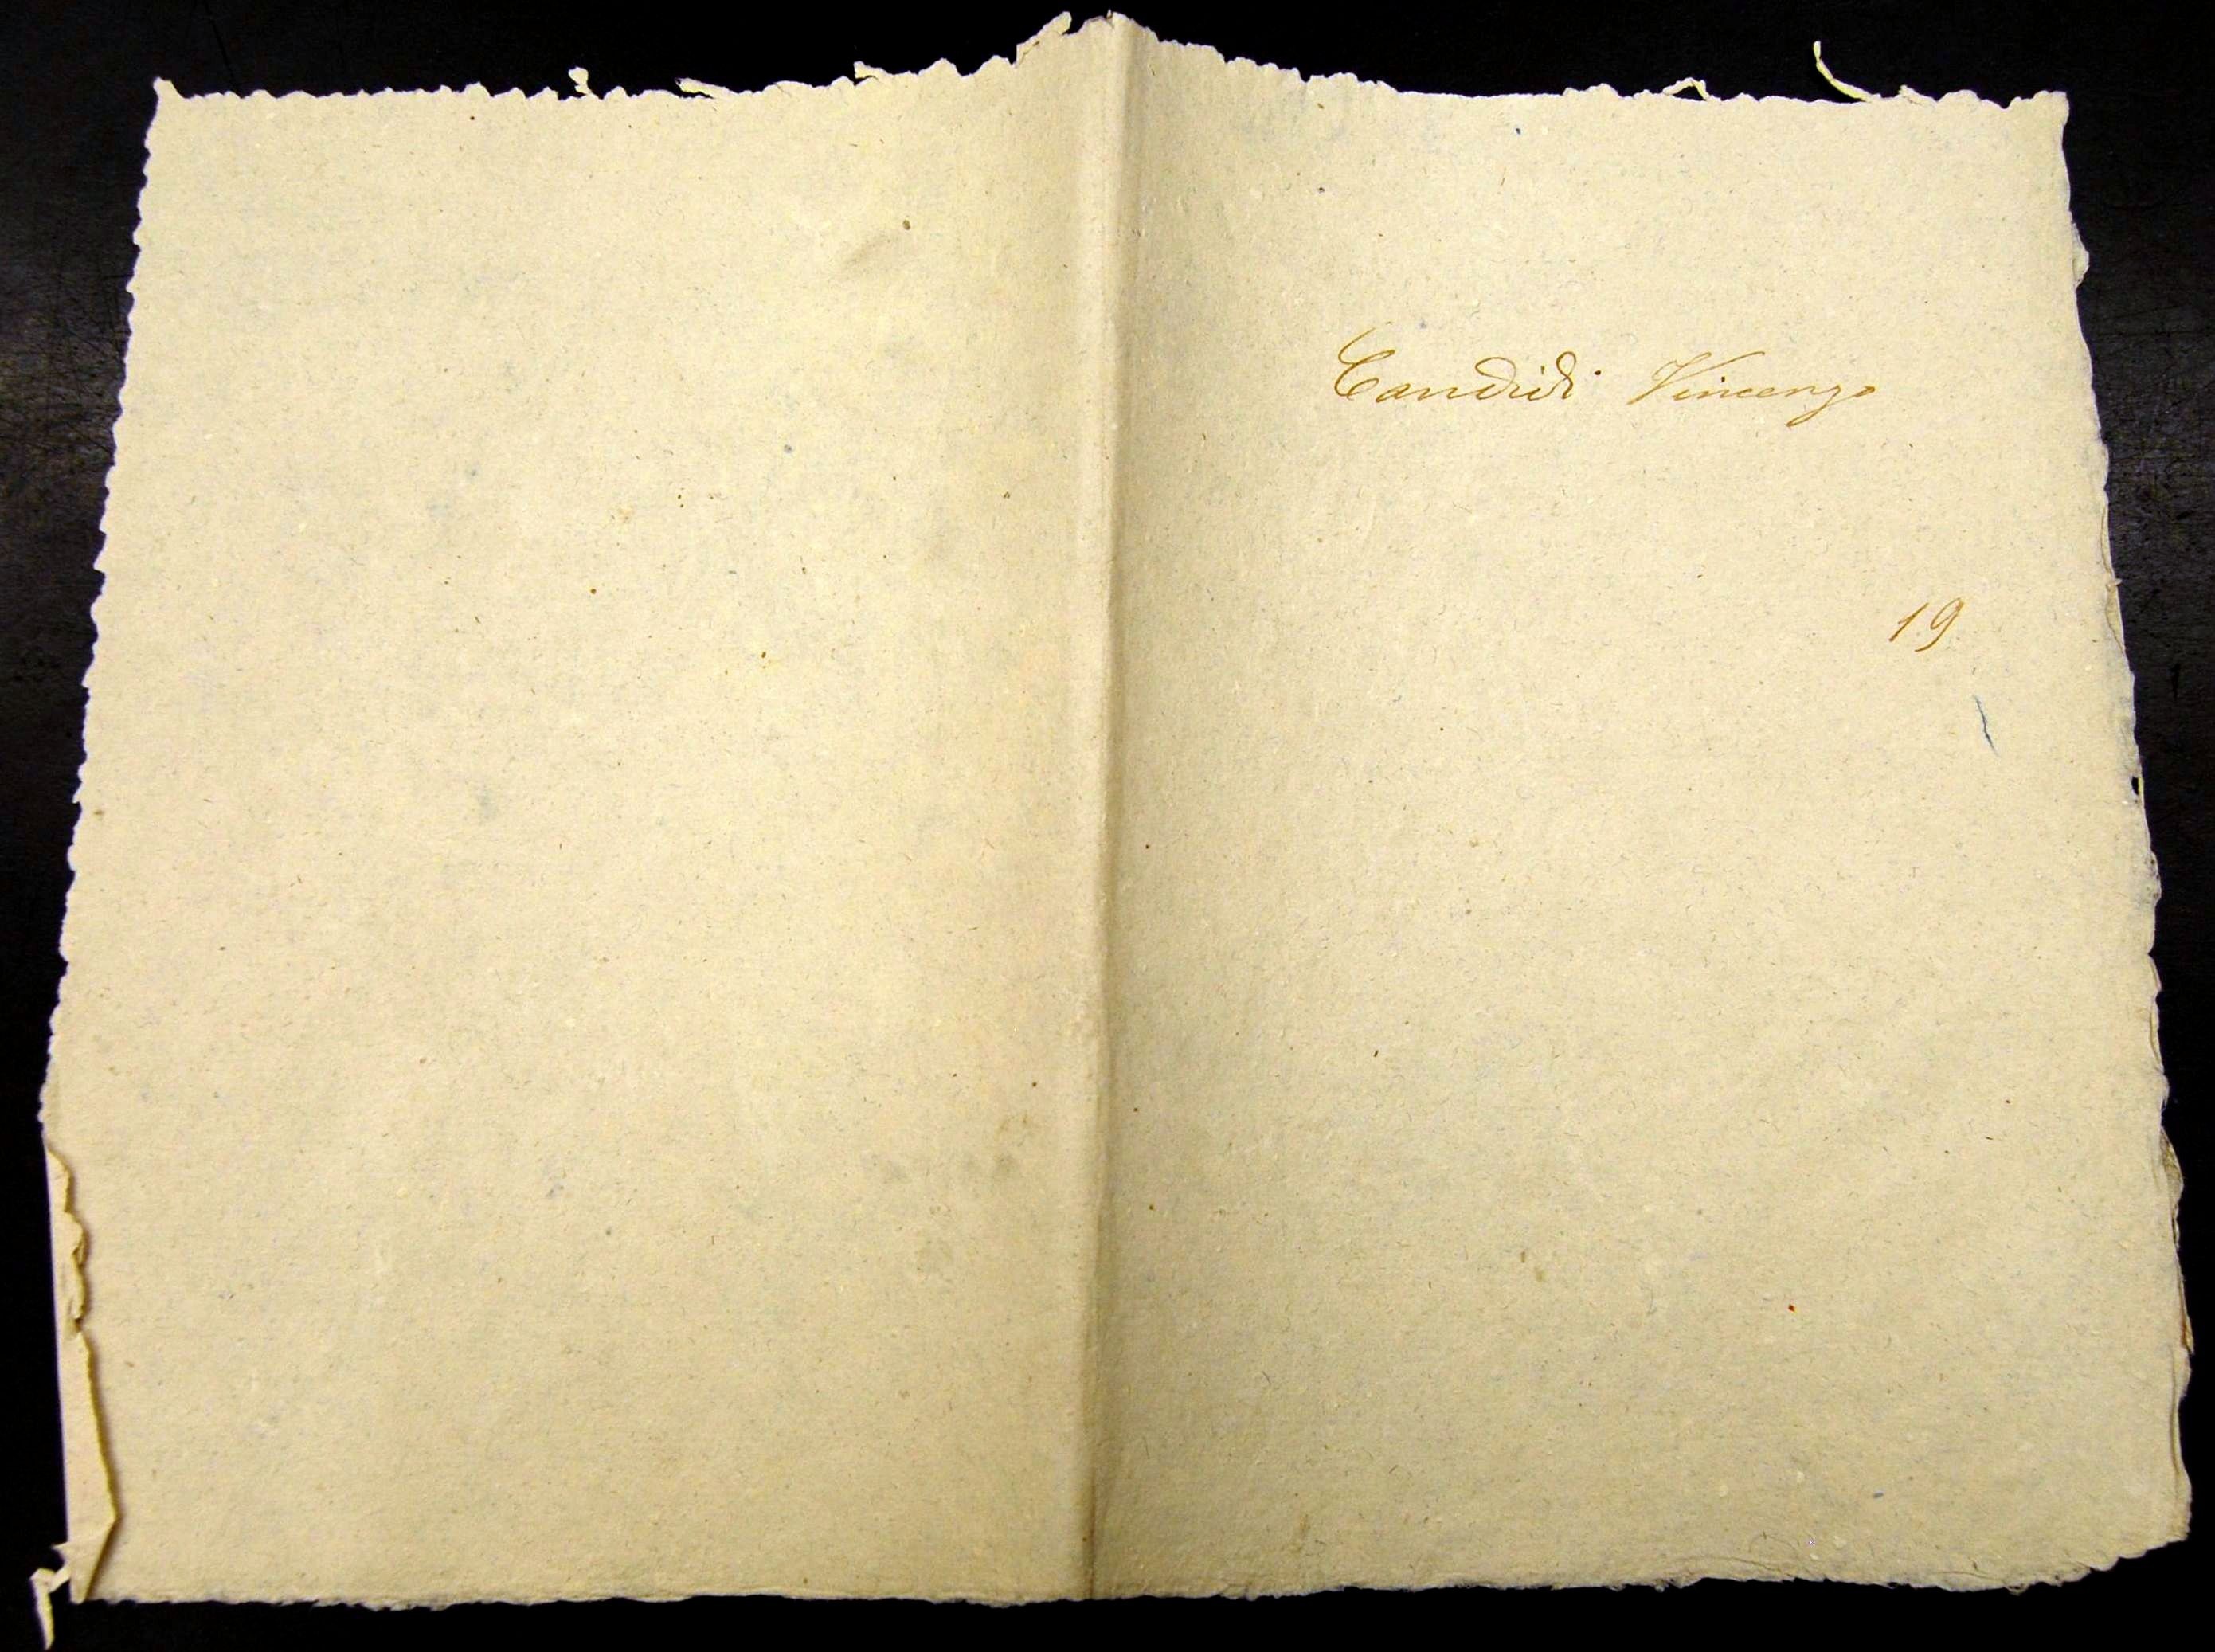 Candidi Vincenzo
19